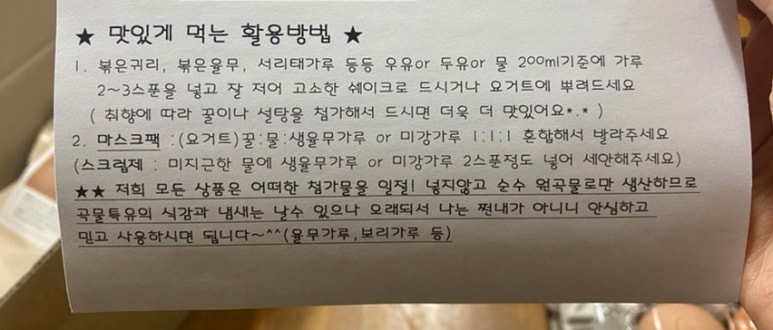 ★ 맛있게 먹는 활용방법 ★
1. 볶은귀리, 볶은율무, 서리태가루 등등 우유or 두유or 물 200ml기준에 가루
2~3스푼을 넣고 잘 저어 고소한 쉐이크로 드시거나 요거트에 뿌려드세요
( 취향에 따라 꿀이나 설탕을 첨가해서 드시면 더욱 더 맛있어요*.* )
2. 마스크팩 :(요거트)꿀:물:생율무가루 or 미강가루 1:1:1 혼합해서 발라주세요
(스크럽제 : 미지근한 물에 생율무가루 or 미강가루 2스푼정도 넣어 세안해주세요)
★★ 저희 모든 상품은 어떠한 첨가물을 일절! 넣지않고 순수 원곡물로만 생산하므로
곡물특유의 식감과 냄새는 날수 있으나 오래되서 나는 쩐내가 아니니 안심하고
믿고 사용하시면 됩니다~^^(율무가루,보리가루 등)